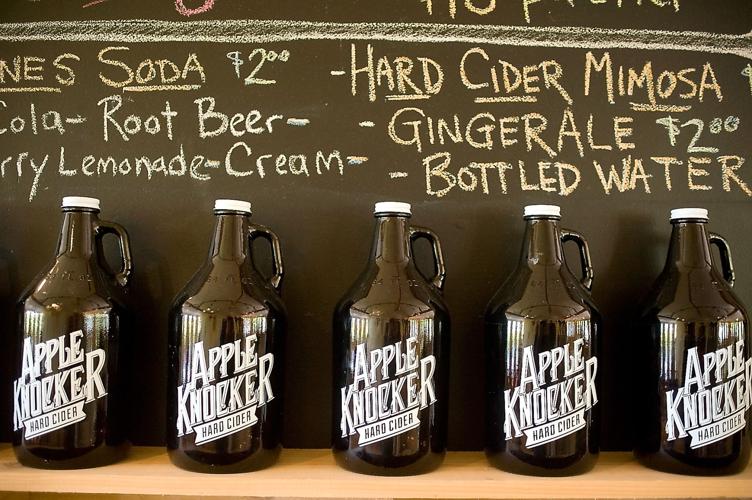 NES SODA $2.00
Cola- Root Beer-
rry Lemonade- Cream-
- HARD CIDER MIMOSA $
- GINGERALE $2.00
- BOTTLED WATER
64 FL OZ
APPLE
KNOCKER
HARD CIDER
64 FL OZ
APPLE
KNOCKER
HARD CIDER
64 FL OZ
APPLE
KNOCKER
HARD CIDER
64 FL OZ
APPLE
KNOCKER
HARD CIDER
APPLE
KNOCKER
HARD CIDER